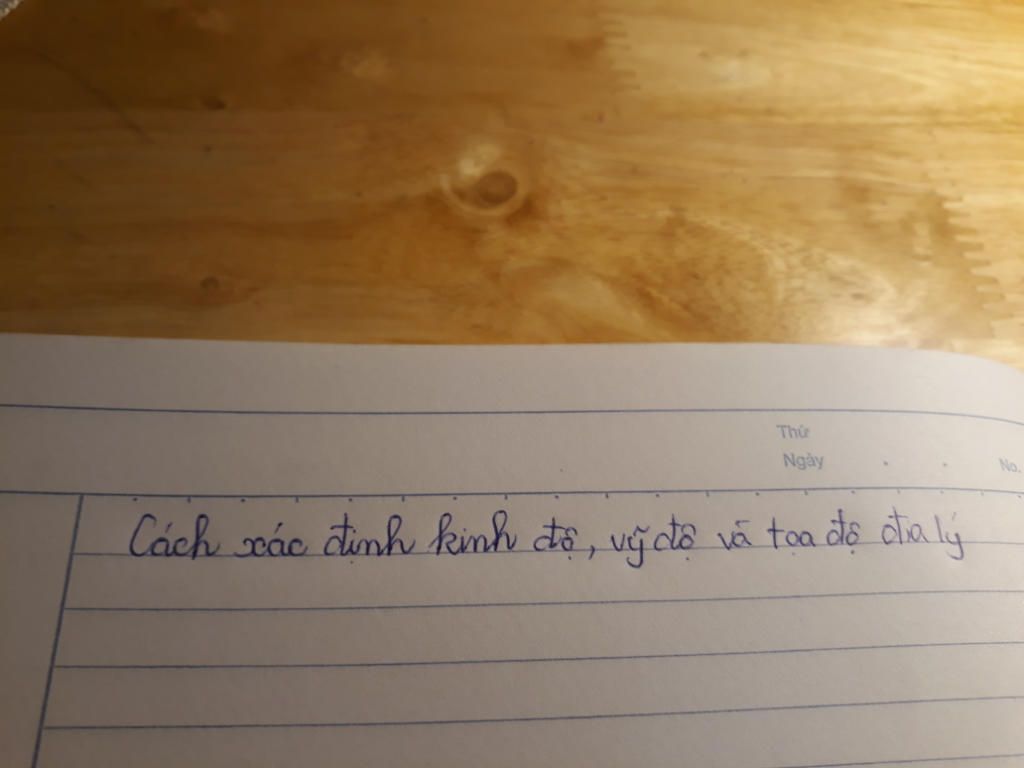 Thứ
Ngày
No.
Cách xác định kinh độ, vỹ độ và tọa độ địa lý